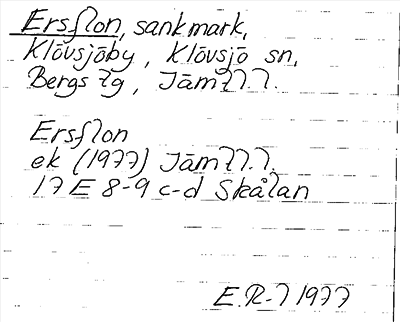 Ersflon, sankmark,
Klövsjöby, Klövsjö sn,
Bergs tg, Jämtl.l.
Ersflon
ek (1977) Jämtl.l.
17 E 8-9 c-d Skålan
E.R-l 1977